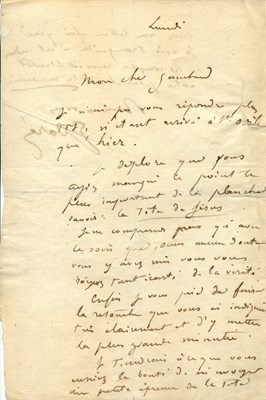 Lundi
Mon cher
Je n'ai pu vous répondre plus
tôt, n'étant arrivé à
que hier.
Je déplore que vous
ayiez manqué le point le
plus important de la planche
savoir: la Tête de Jésus
Je ne comprends pas qu'avec
le soin que, sans aucun doute
vous y avez mis vous vous
soyez tant écarté de la vérité
Enfin je vous prie de faire
la retouche que vous ai indiqué
très clairement et d'y mettre
la plus grande
Je tiendrais à ce que vous
eussiez la bonté de m'envoyer
une petite épreuve de la Tête